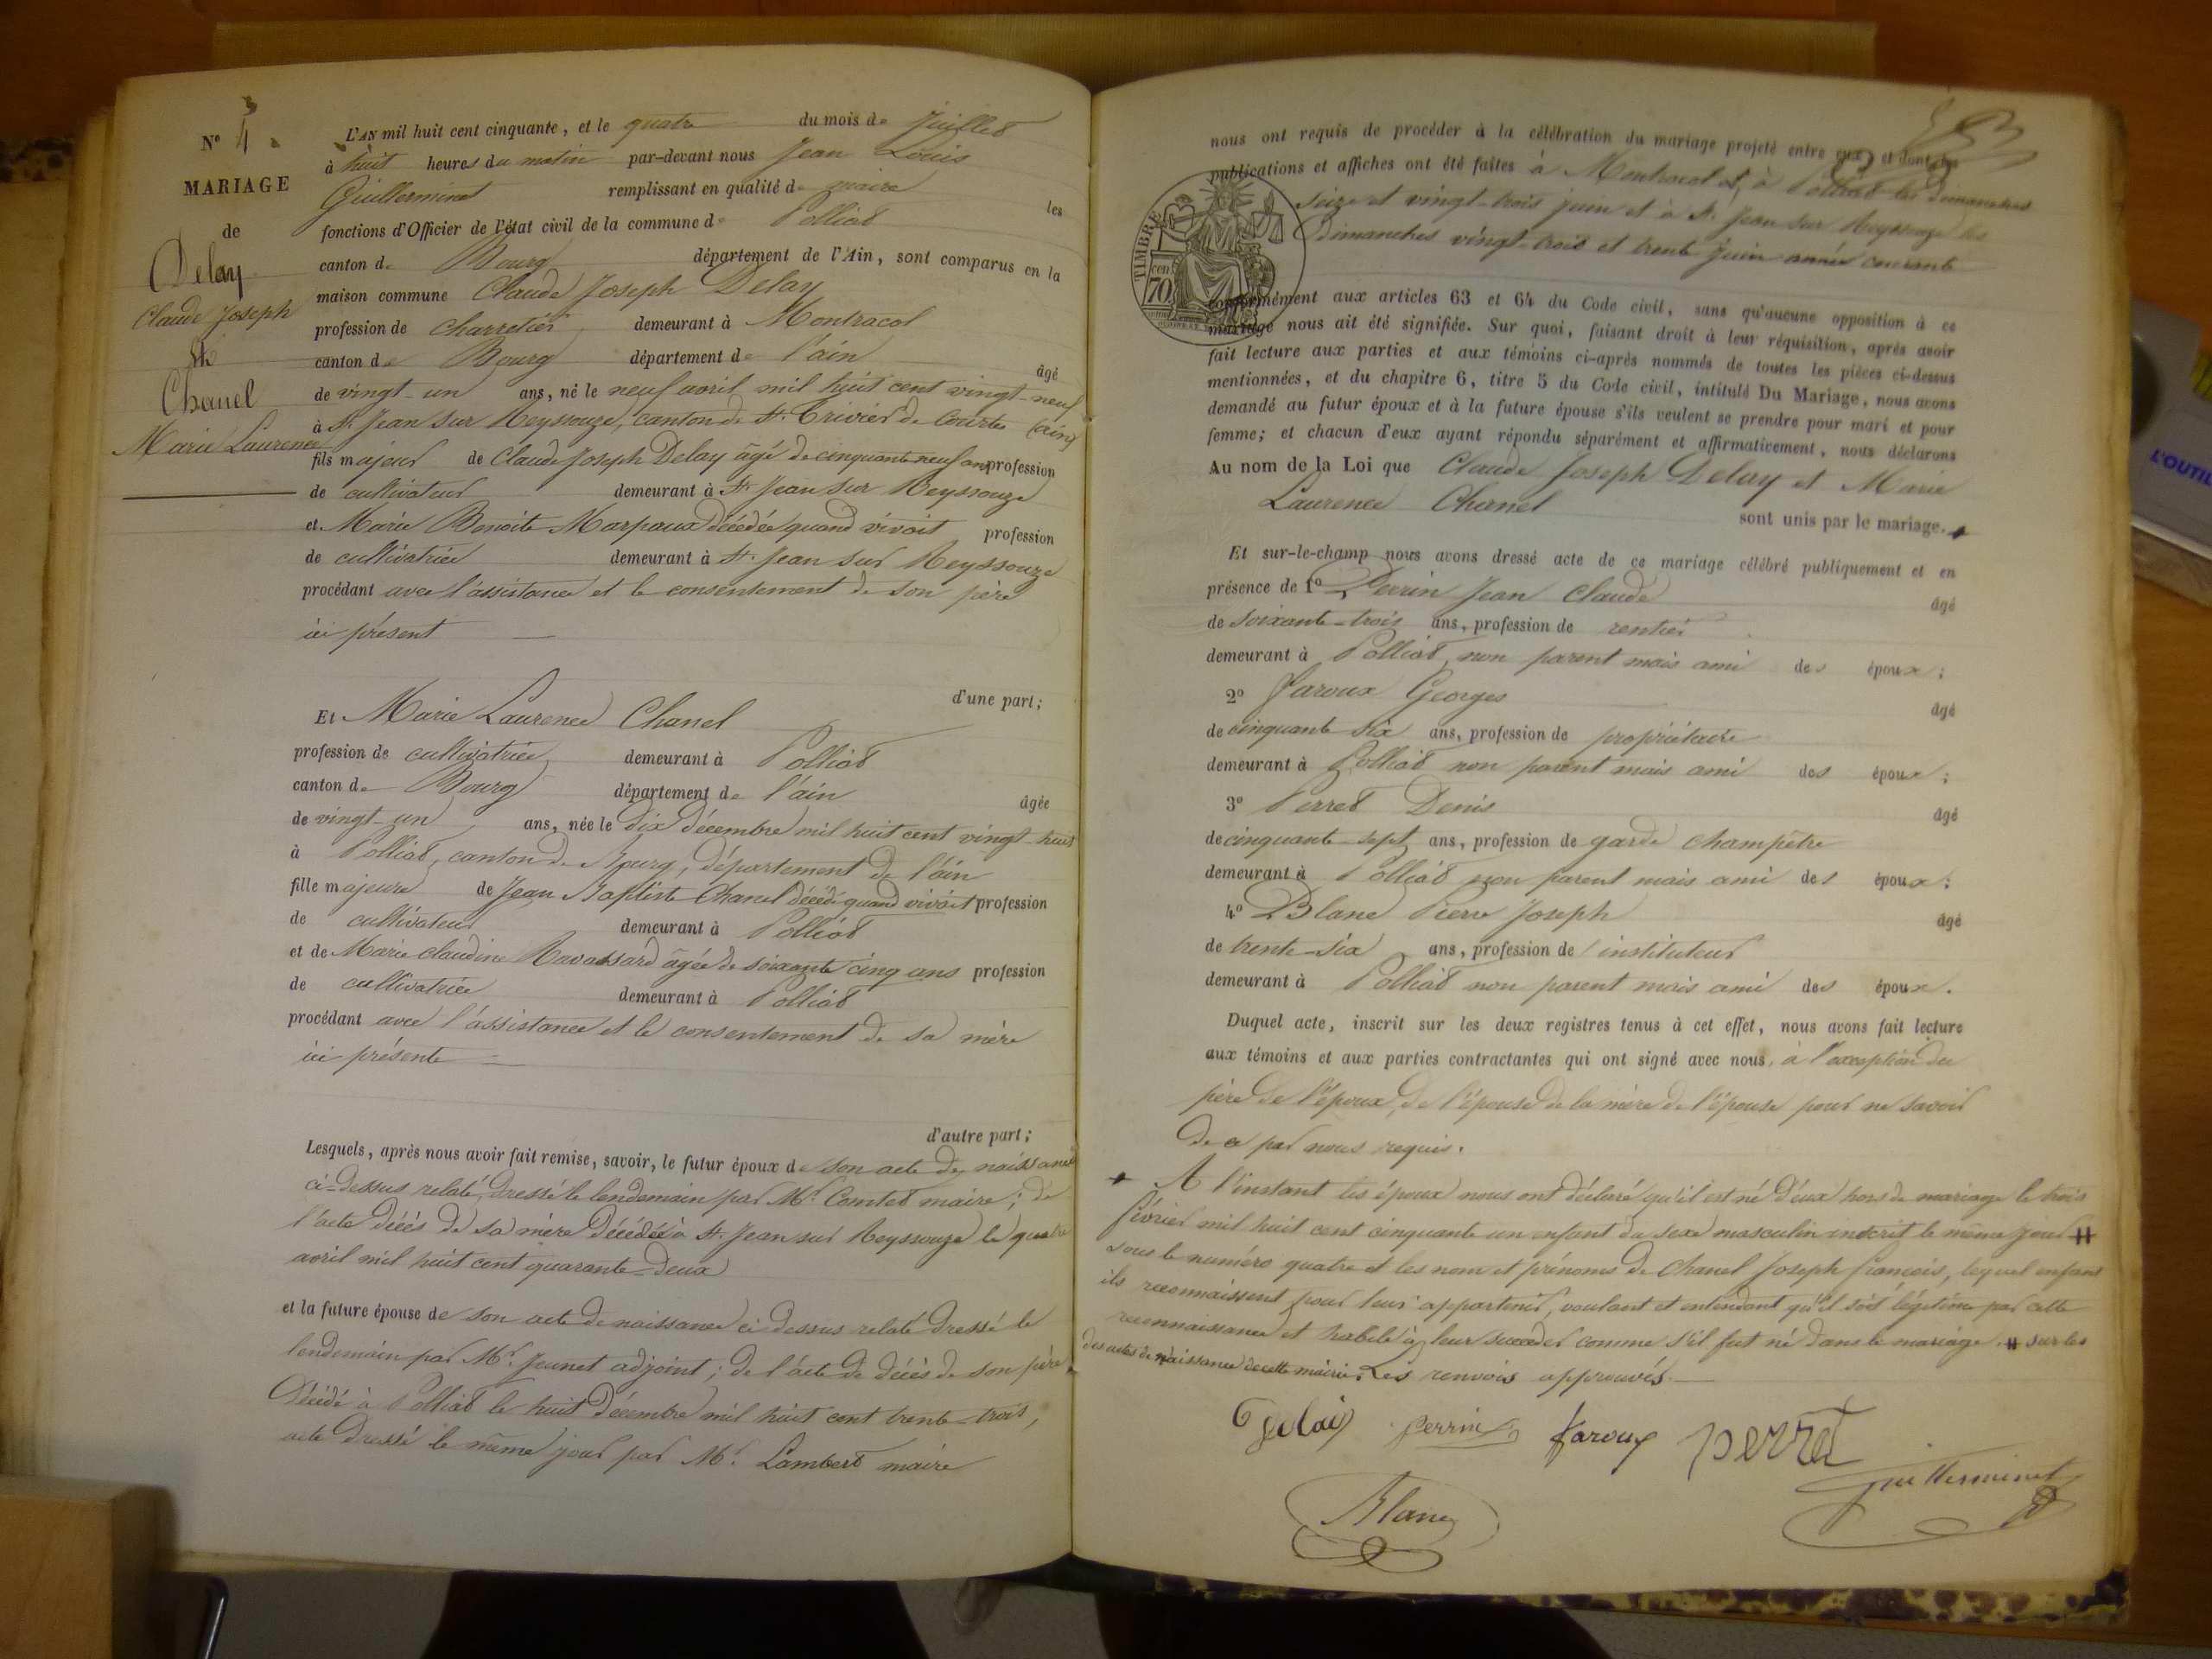 3
N° 4
MARIAGE
de
Delay
Claude Joseph
et
Chanel
Marie Laurence
L'AN mil huit cent cinquante, et le quatre du mois de Juillet
à huit heures du matin par-devant nous Jean Louis
Guillerminet remplissant en qualité de maire les
fonctions d'Officier de l'état civil de la commune de Polliat
canton de Bourg département de l'Ain, sont comparus en la
maison commune Claude Joseph Delay
profession de charretier demeurant à Montracol
canton de Bourg département de l'ain âgé
de vingt-un ans, né le neuf avril mil huit cent vingt-neuf
à St Jean sur Reyssouze, canton de St Trivier de Courtes (ain)
fils majeur de Claude Joseph Delay âgé de cinquante neuf ans profession
de cultivateur demeurant à St Jean sur Reyssouze
et Marie Benoite Marpaux décédée quand vivait profession
de cultivatrice demeurant à St Jean sur Reyssouze
procédant avec l'assistance et le consentement de son père
ici présent
d'une part;
Et Marie Laurence Chanel
profession de cultivatrice demeurant à Polliat
canton de Bourg département de l'ain âgée
de vingt-un ans, née le dix décembre mil huit cent vingt-huit
à Polliat, canton de Bourg, département de l'ain
fille majeure de Jean Baptiste Chanel décédé quand vivait profession
de cultivateur demeurant à Polliat
et de Marie claudine Ravassard âgée de soixante cinq ans profession
de cultivatrice demeurant à Polliat
procédant avec l'assistance et le consentement de sa mère
ici présente
d'autre part;
Lesquels, après nous avoir fait remise, savoir, le futur époux de son acte de naissance
ci-dessus relaté, dressé le lendemain par Mr. Comtet maire; de
l'acte décès de sa mère décédée à St. Jean sur Reyssouze le quatre
avril mil huit cent quarante-deux
et la future épouse de son acte de naissance ci dessus relaté dressé le
lendemain par Mr. Jeunet adjoint; de l'acte de décès de son père
décédé à Polliat le huit décembre mil huit cent trente-trois,
acte dressé le même jour par Mr. Lambert maire
nous ont requis de procéder à la célébration du mariage projeté entre eux, et dont les
publications et affiches ont été faites à Montracol et à Polliat les dimanches
seize et vingt-trois juin et à St. Jean sur Reyssouze les
Dimanches vingt-trois et trente juin année courante
TIMBRE
70 cen
conformément aux articles 63 et 64 du Code civil, sans qu'aucune opposition à ce
mariage nous ait été signifiée. Sur quoi, faisant droit à leur réquisition, après avoir
fait lecture aux parties et aux témoins ci-après nommés de toutes les pièces ci-dessus
mentionnées, et du chapitre 6, titre 5 du Code civil, intitulé Du Mariage, nous avons
demandé au futur époux et à la future épouse s'ils veulent se prendre pour mari et pour
femme; et chacun d'eux ayant répondu séparément et affirmativement, nous déclarons
Au nom de la Loi que Claude Joseph Delay et Marie
Laurence Chanel sont unis par le mariage.
Et sur-le-champ nous avons dressé acte de ce mariage célébré publiquement et en
présence de 1° Perrin Jean Claude âgé
de soixante-trois ans, profession de rentier
demeurant à Polliat, non parent mais ami des époux;
2° Faroux Georges âgé
de cinquante six ans, profession de propriétaire
demeurant à Polliat non parent mais ami des époux;
3° Perret Denis âgé
de cinquante-sept ans, profession de garde champêtre
demeurant à Polliat non parent mais ami des époux;
4° Blanc Pierre Joseph âgé
de trente-six ans, profession de instituteur
demeurant à Polliat non parent mais ami des époux.
Duquel acte, inscrit sur les deux registres tenus à cet effet, nous avons fait lecture
aux témoins et aux parties contractantes qui ont signé avec nous, à l'exception du
père de l'époux, de l'épouse de la mère de l'épouse pour ne savoir
de ce par nous requis.
A l'instant les époux nous ont déclaré qu'il est né d'eux hors de mariage le trois
février mil huit cent cinquante un enfant du sexe masculin inscrit le même jour #
sous le numéro quatre et les nom et prénoms de Chanel Joseph françois, lequel enfant
ils reconnaissent pour leur appartenir, voulant et entendant qu'il soit légitimé par cette
reconnaissance et habile à leur succéder comme s'il fut né dans le mariage. # sur les
des actes de naissance de cette mairie. Les renvois approuvés.
Delay perrin faroux perret
Guillerminet
Blanc
L'OUTIL